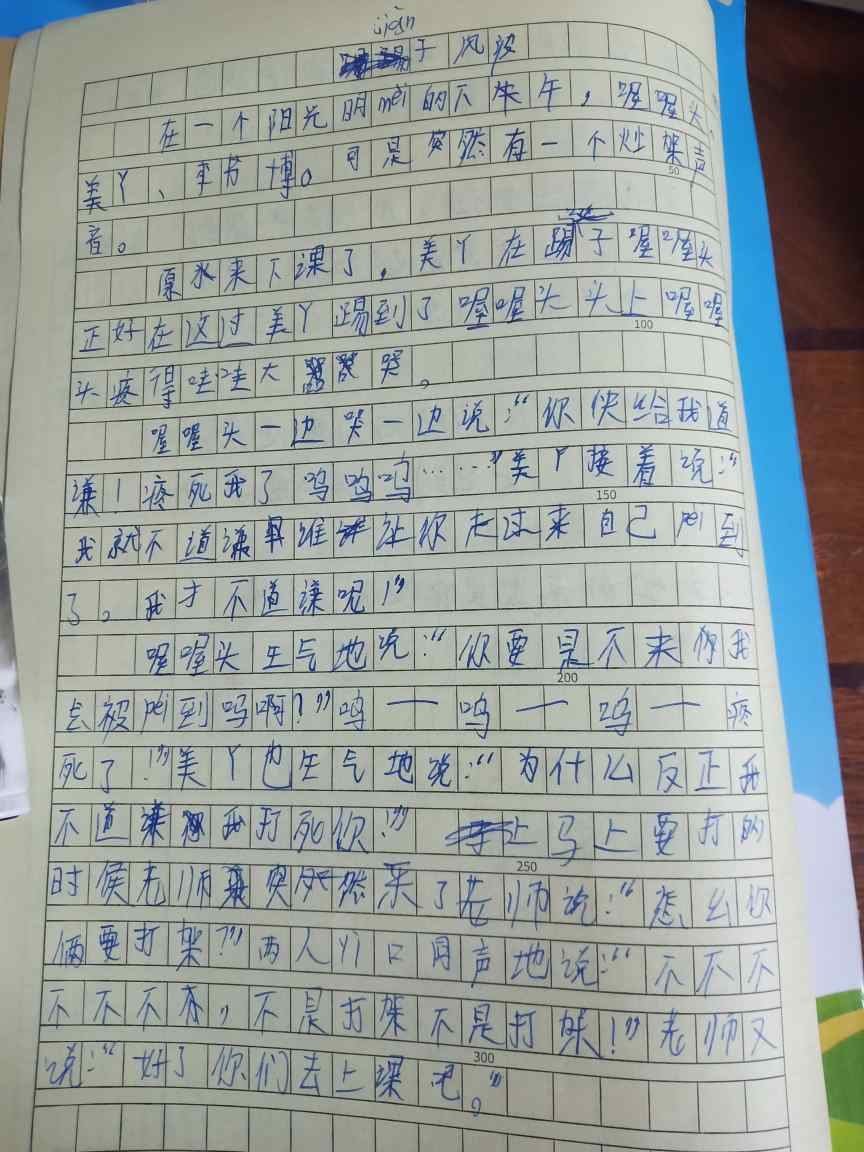 jiàn
子风波
在一个阳光明mèi的下午，喔喔头、
美丫、李芳博。可是突然有一个吵架声
50
音。
原来下课了，美丫在踢子喔喔头
正好在这过美丫踢到了喔喔头头上喔喔
100
头疼得哇哇大哭。
喔喔头一边哭一边说：“你快给我道
谦！疼死我了呜呜呜……”美丫接着说：“
150
我就不道谦谁让你走过来自己pèi到
了。我才不道谦呢！”
喔喔头生气地说：“你要是不来你我
200
去被pèi到吗啊？”呜一呜一呜一疼
死了！”美丫也生气地说：“为什么反正我
不道谦我打死你！”马上要打的
250
时侯老师突然来了老师说：“怎么你
俩要打架？”两人yì口同声地说：“不不不
不不不不，不是打架不是打架！”老师又
300
说：“好了你们去上课吧。”